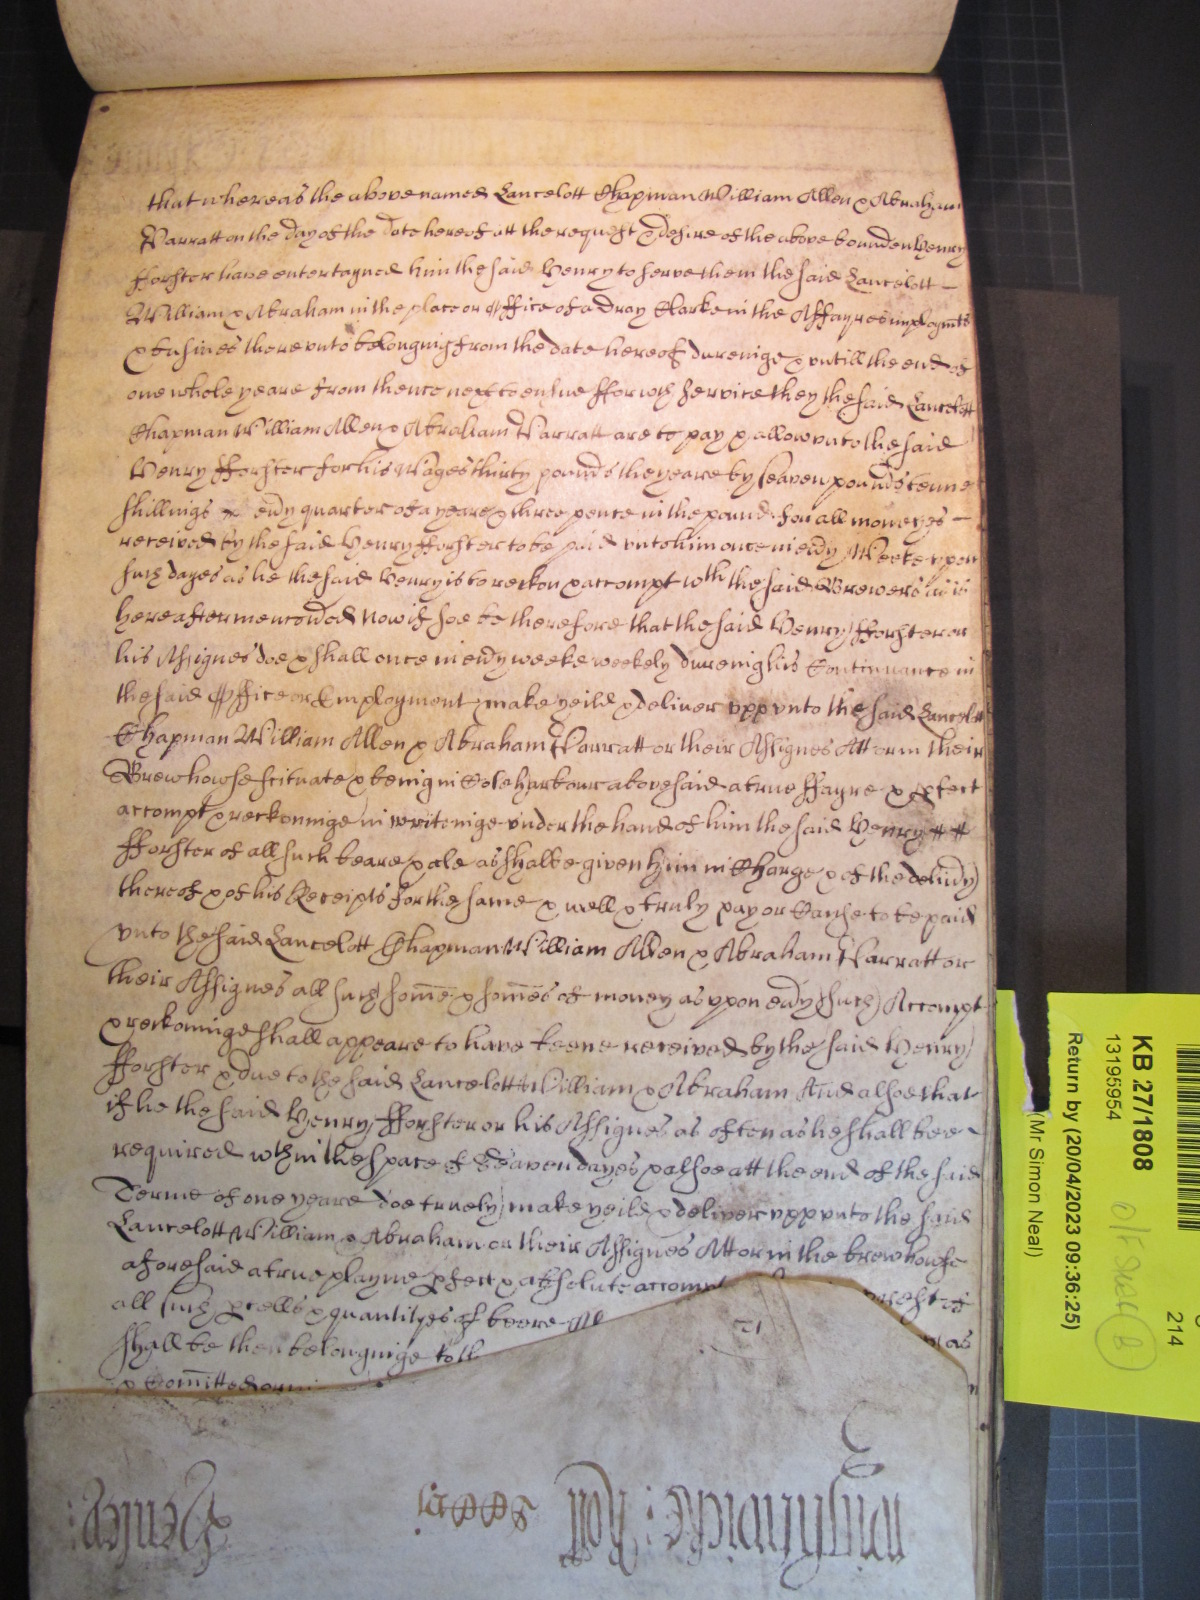 that whereas the above named Lancelott Chapman William Allen & Abraham
Parratt on the day of the date hereof att the request & desire of the above bounden Henry
fforster have entertayned him the said Henry to serve them the said Lancelott
William & Abraham in the place or Office of a Dray Clarke in the Affayres imploymts
& busines thereunto belonginig from the date hereof dureinge & untill the end of
one whole yeare from thence next to ensue ffor wch service they the said Lancelott
Chapman William Allen & Abraham Parratt are to pay & allow unto the said
Henry fforster for his Wages thirty pounds the yeare by seaven pounds tenne
shillings evy quarter of a yeare & three pence in the pound for all moneyes
received by the said Henry fforster to be paid unto him once in evy Weeke upon
such dayes as he the said Henry is to reckon & accompt wth the said Brewers as is
hereafter mencoed Now if soe be therefore that the said Henry fforster or
his Assignes doe & shall once in evy weeke weekely dureing his Continuance in
the said Office or Employment make yeild & deliver upp unto the said Lancelott
Chapman William Allen & Abraham Parratt or their Assignes Att or in their
Brewhowse scituate & being in Coleharbour abovesaid a true ffayre & pfect
accompt & reckoninge in writeinge under the hand of him the said Henry
fforster of all such beare & ale as shalbe given him in Charge & of the delivy
thereof & of his Receipts for the same & well & truly pay or Cause to be paid
unto the said Lancelott Chapman William Allen & Abraham Parratt or
their Assignes all such some & somes of money as upon evy such Accompt
& reckoninge shall appeare to have beene received by the said Henry
fforster & due to the said Lancelott William & Abraham And alsoe that
if he the said Henry fforster or his Assignes as often as he shall bee
required wthin the space of Seaven dayes & alsoe att the end of the said
Terme of one yeare doe truely make yeild & deliver upp unto the said
Lancelott William & Abraham or their Assignes Att or in the brewhouse
aforesaid a true playne pfect & absolute accompt of
all such pcells & quantityes of beere as
shall be then belonginge to th
& Comitted or
12
Wightwicke: Roll
Henley:
KB 27/1808
13195954
Return by (20/04/2023 09:36:25)
(Mr Simon Neal)
214